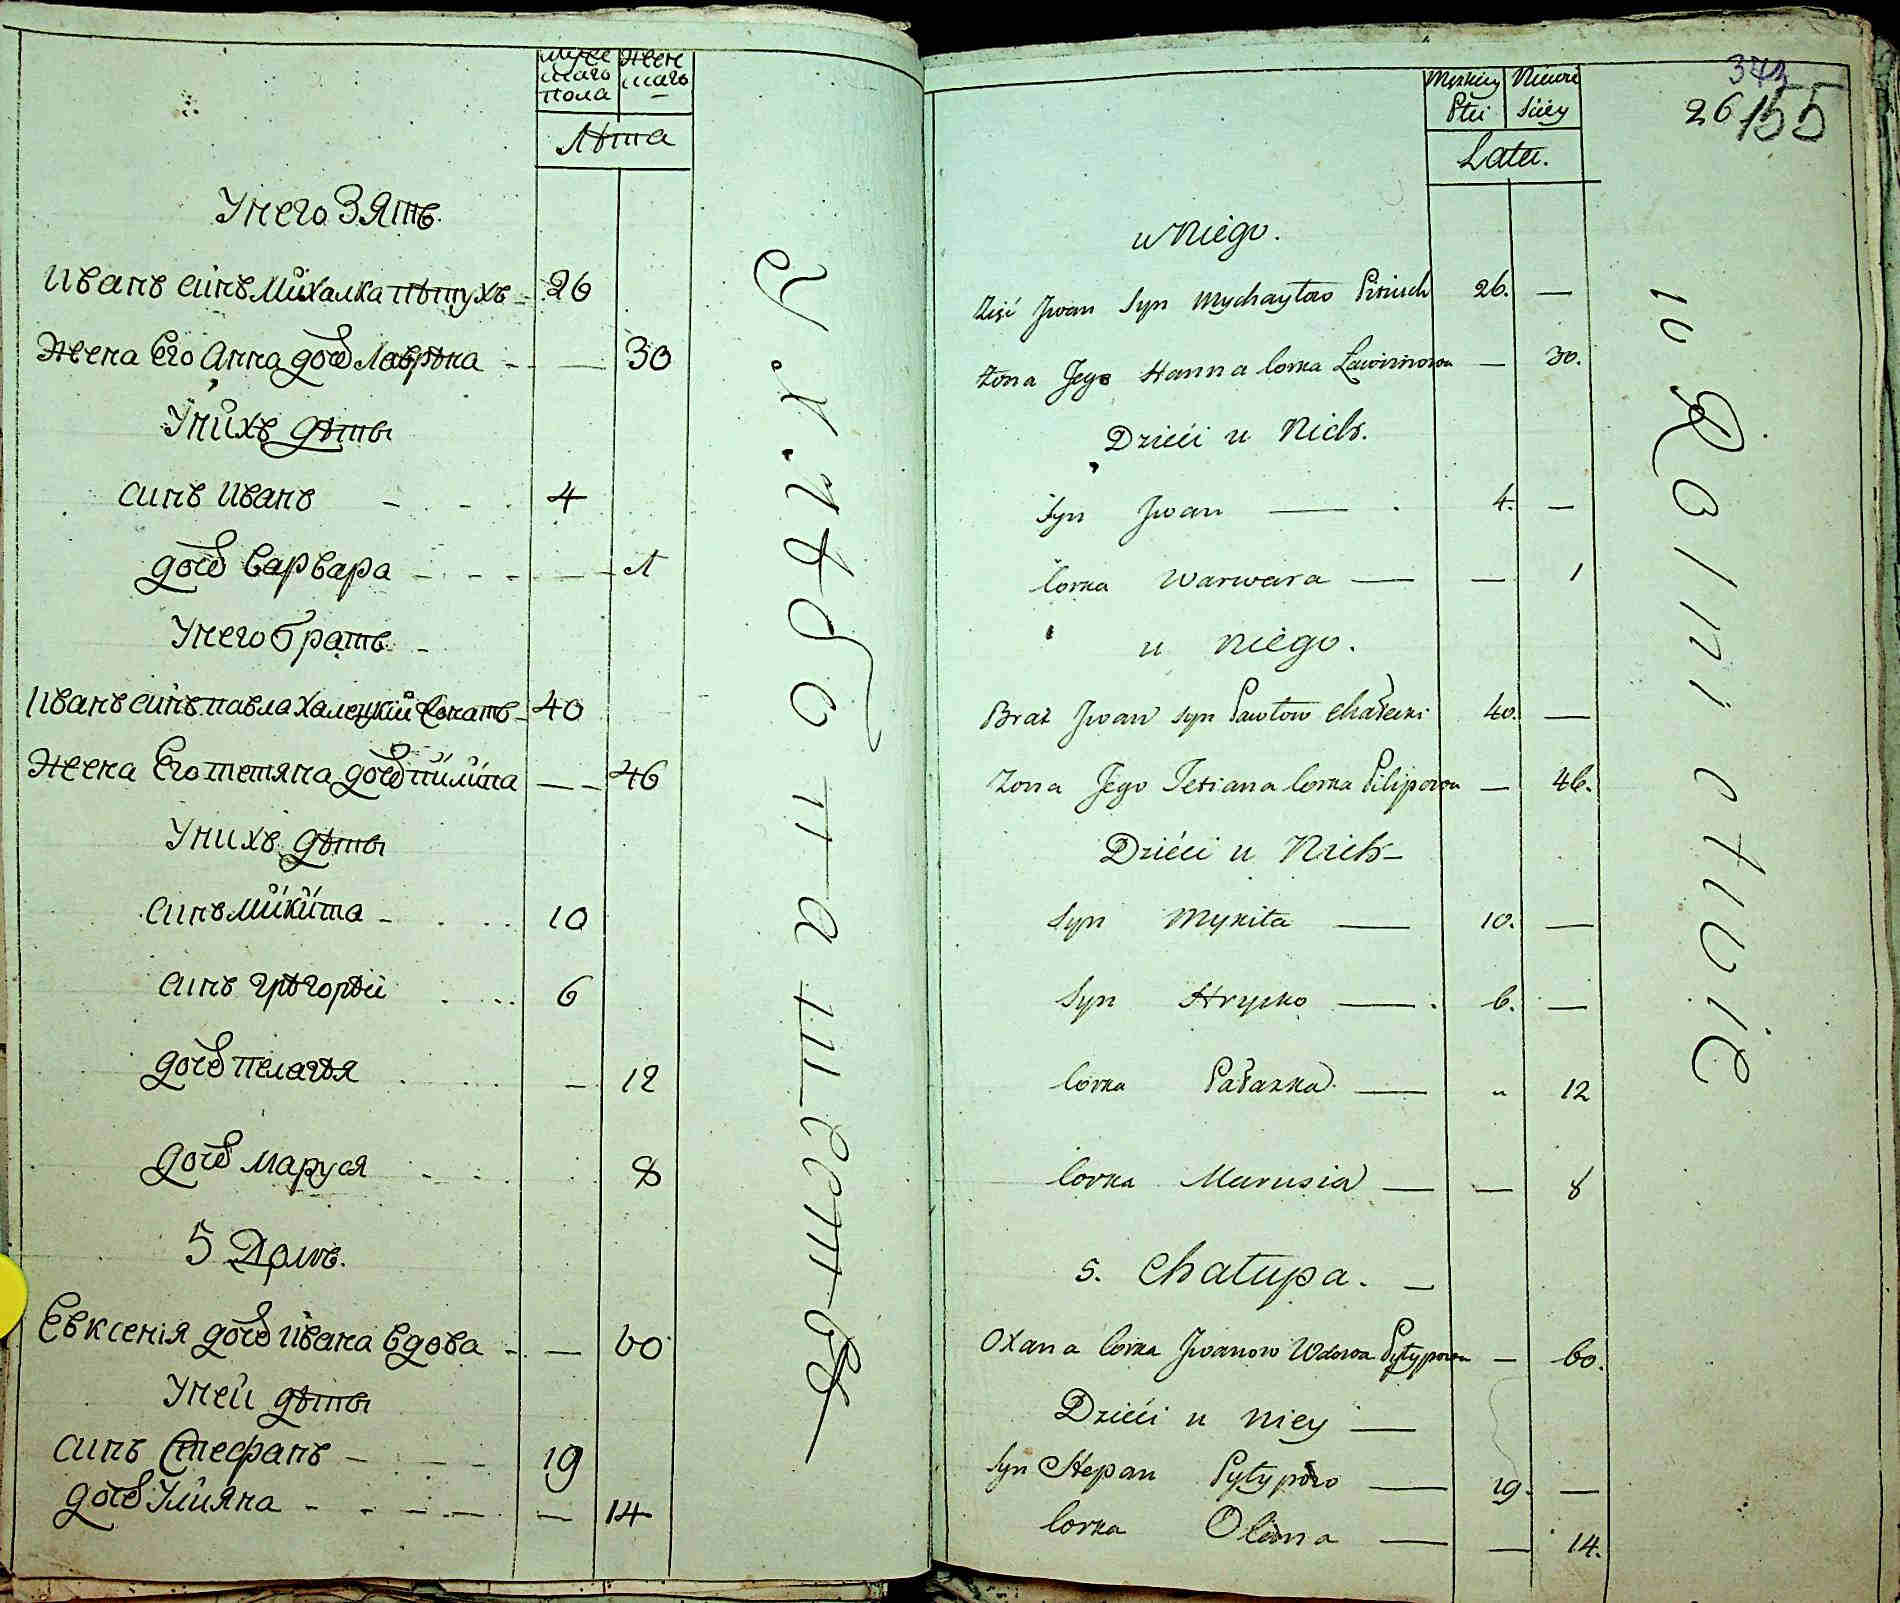 Муже Жен
скаго скаго
пола
Лѣта
У него Зять.
Иванъ синъ Михалка пѣтухъ 26
Жена Его Анна дочь Лаврѣна — 30
У нихъ дѣты
синъ Иванъ 4
дочь Варвара — 1
У него братъ
Иванъ синъ павла Халецкій 40
Жена Его тетяна дочь пилипа — 46
У нихъ дѣты
синъ Микита 10
синъ Грѣгорѣй 6
дочь Пелагѣя — 12
дочь Маруся 8
5 Домъ.
Евксенія дочь Ивана вдова — 60
У ней дѣты
синъ Стефанъ 19
дочь Улияна — 14
Męzkiey Niewie
Płci śćiey
Lata.
343
26 155
u Niego.
Zięć Jwan Syn Mychayłow 26. —
żona Jego Hanna Corka — 30.
Dzieći u Nich.
Syn Jwan — 4. —
Corka Warwara — — 1
u niego.
Brat Jwan Syn Pawłow Chałecki 40. —
żona Jego Tetiana Corka Pilipowa — 46.
Dzieći u Nich —
Syn Mykita — 10. —
Syn Hrycko — 6. —
Corka Pałazka — " 12
Corka Marusia — — 8
5. Chałupa. —
Oxana Corka Jwanow Wdowa Pyłypowa — 60.
Dzieći u niey —
Syn Stepan Pyłypow — 19. —
Corka Olana — — 14.